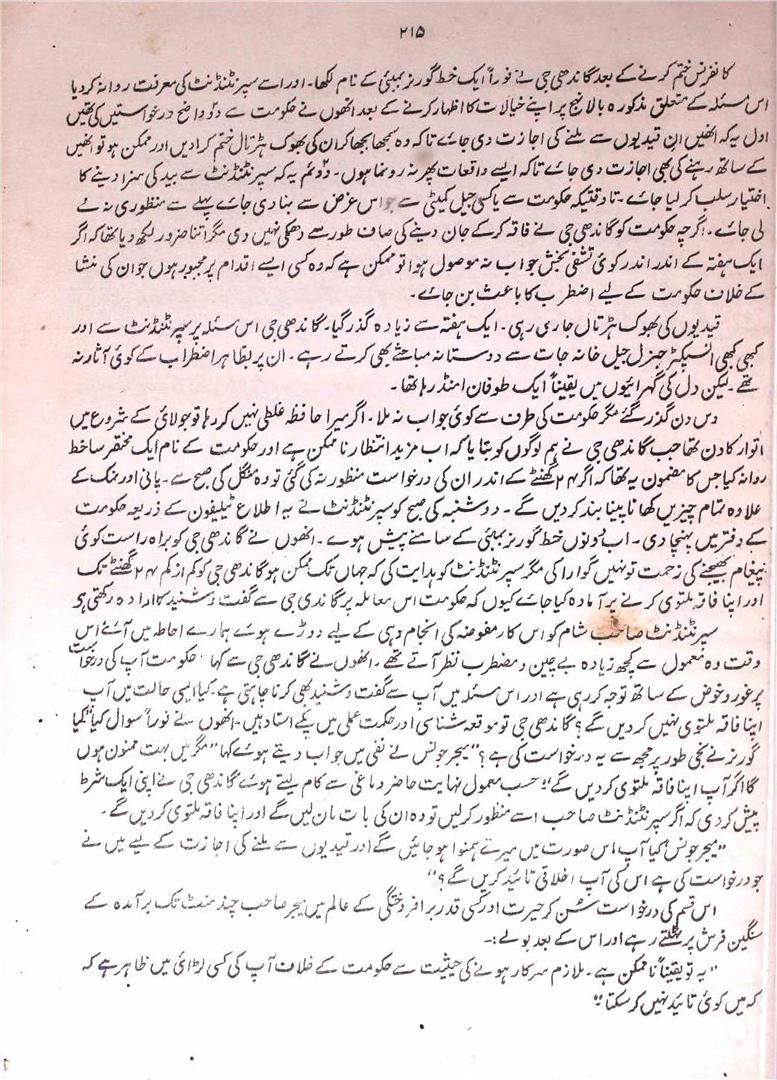 ۲۱۵
کانفرنس ختم کرنے کے بعد گاندھی جی نے فوراً ایک خط گورنر بمبئی کے نام لکھا۔ اور اسے سپرنٹنڈنٹ کی معرفت روانہ کر دیا
اس مسئلہ کے متعلق مذکورہ بالا نہج پر اپنے خیالات کا اظہار کرنے کے بعد انھوں نے حکومت سے دو واضح درخواستیں کی تھیں
اول یہ کہ انھیں ان قیدیوں سے ملنے کی اجازت دی جائے تاکہ وہ سمجھا بجھا کر ان کی بھوک ہڑتال ختم کرا دیں اور ممکن ہو تو انھیں
کے ساتھ رہنے کی بھی اجازت دی جائے تاکہ ایسے واقعات پھر نہ رونما ہوں۔ دوئم یہ کہ سپرنٹنڈنٹ سے بید کی سزا دینے کا
اختیار سلب کر لیا جائے۔ تا وقتیکہ حکومت سے یا کسی جیل کمیٹی سے جو اس غرض سے بنا دی جائے پہلے سے منظوری نہ لے
لی جائے۔ اگرچہ حکومت کو گاندھی جی نے فاقہ کر کے جان دینے کی صاف طور سے دھمکی نہیں دی مگر اتنا ضرور لکھ دیا تھا کہ اگر
ایک ہفتہ کے اندر اندر کوئی تشفی بخش جواب نہ موصول ہوا تو ممکن ہے کہ وہ کسی ایسے اقدام پر مجبور ہوں جو ان کی منشا
کے خلاف حکومت کے لیے اضطرب کا باعث بن جائے۔
قیدیوں کی بھوک ہڑتال جاری رہی۔ ایک ہفتہ سے زیادہ گذر گیا۔ گاندھی جی اس مسئلہ پر سپرنٹنڈنٹ سے اور
کبھی کبھی انسپکٹر جنرل جیل خانہ جات سے دوستانہ مباحثے بھی کرتے رہے۔ ان پر بظاہر اضطراب کے کوئی آثار نہ
تھے۔ لیکن دل کی گہرائیوں میں یقیناً ایک طوفان امنڈ رہا تھا۔
دس دن گذر گئے مگر حکومت کی طرف سے کوئی جواب نہ ملا۔ اگر میرا حافظہ غلطی نہیں کر رہا تو جولائی کے شروع میں
اتوار کا دن تھا جب گاندھی جی نے ہم لوگوں کو بتایا کہ اب مزید انتظار ناممکن ہے اور حکومت کے نام ایک مختصر سا خط
روانہ کیا جس کا مضمون یہ تھا کہ اگر ۲۴ گھنٹے کے اندر ان کی درخواست منظور نہ کی گئی تو وہ منگل کی صبح سے۔ پانی اور نمک کے
علاوہ تمام چیزیں کھانا پینا بند کر دیں گے۔ دوشنبہ کی صبح کو سپرنٹنڈنٹ نے یہ اطلاع ٹیلیفون کے ذریعہ حکومت
کے دفتر میں پہنچا دی۔ اب دونوں خط گورنر بمبئی کے سامنے پیش ہوے۔ انھوں نے گاندھی جی کو براہ راست کوئی
پیغام بھیجنے کی زحمت تو نہیں گوارا کی مگر سپرنٹنڈنٹ کو ہدایت کی کہ جہاں تک ممکن ہو گاندھی جی کو کم از کم ۲۴ گھنٹے تک
اور اپنا فاقہ ملتوی کرنے پر آمادہ کیا جائے کیوں کہ حکومت اس معاملہ پر گاندی جی سے گفت و شنید کا ارادہ رکھتی ہے
سپرنٹنڈنٹ صاحب شام کو اس کار مفوضہ کی انجام دہی کے لیے دوڑے ہوئے ہمارے احاطہ میں آئے اس
وقت وہ معمول سے کچھ زیادہ بے چین و مضطرب نظر آتے تھے۔ انھوں نے گاندھی جی سے کہا "حکومت آپ کی درخواست
پر غور و خوض کے ساتھ توجہ کر رہی ہے اور اس مسئلہ میں آپ سے گفت و شنید بھی کرنا چاہتی ہے۔ کیا ایسی حالت میں آپ
اپنا فاقہ ملتوی نہیں کر دیں گے؟ گاندھی جی تو موقعہ شناسی اور حکمت عملی میں پکے استاد ہیں۔ انھوں نے فوراً سوال کیا "کیا
گورنر نے نجی طور پر مجھ سے یہ درخواست کی ہے؟" میجر جونس نے نفی میں جواب دیتے ہوئے کہا "مگر میں بہت ممنون ہوں
گا اگر آپ اپنا فاقہ ملتوی کر دیں گے" حسب معمول نہایت حاضر دماغی سے کام لیتے ہوئے گاندھی جی نے اپنی ایک شرط
پیش کر دی کہ اگر سپرنٹنڈنٹ صاحب اسے منظور کر لیں تو وہ ان کی بات مان لیں گے اور اپنا فاقہ ملتوی کر دیں گے۔
"میجر جونس! کیا آپ اس صورت میں میرے ہمنوا ہو جائیں گے اور قیدیوں سے ملنے کی اجازت کے لیے میں نے
جو درخواست کی ہے اس کی آپ اخلاقی تائید کریں گے؟"
اس قسم کی درخواست سُن کر حیرت اور کسی قدر برافروختگی کے عالم میں میجر صاحب چند منٹ تک برآمدہ کے
سنگین فرش پر ٹہلتے رہے اور اس کے بعد بولے :۔
"یہ تو یقیناً ناممکن ہے۔ ملازم سرکار ہونے کی حیثیت سے حکومت کے خلاف آپ کی کسی لڑائی میں ظاہر ہے کہ
کہ میں کوئی تائید نہیں کر سکتا"